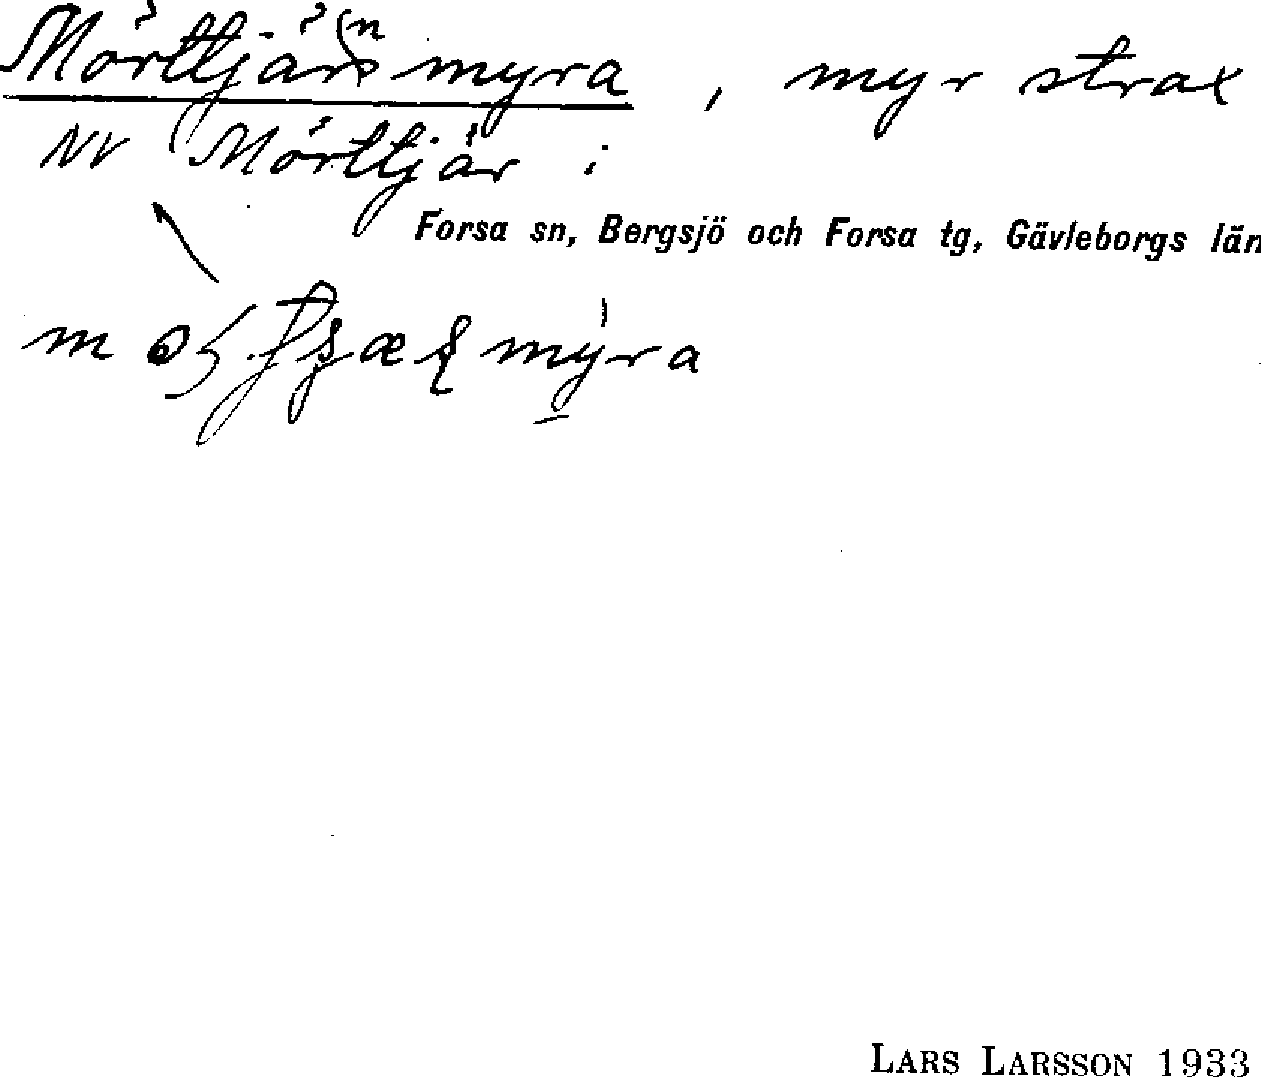 Mörttjärnsmyra, myr strax
NV Mörttjär i
Forsa sn, Bergsjö och Forsa tg, Gävleborgs län
LARS LARSSON 1933